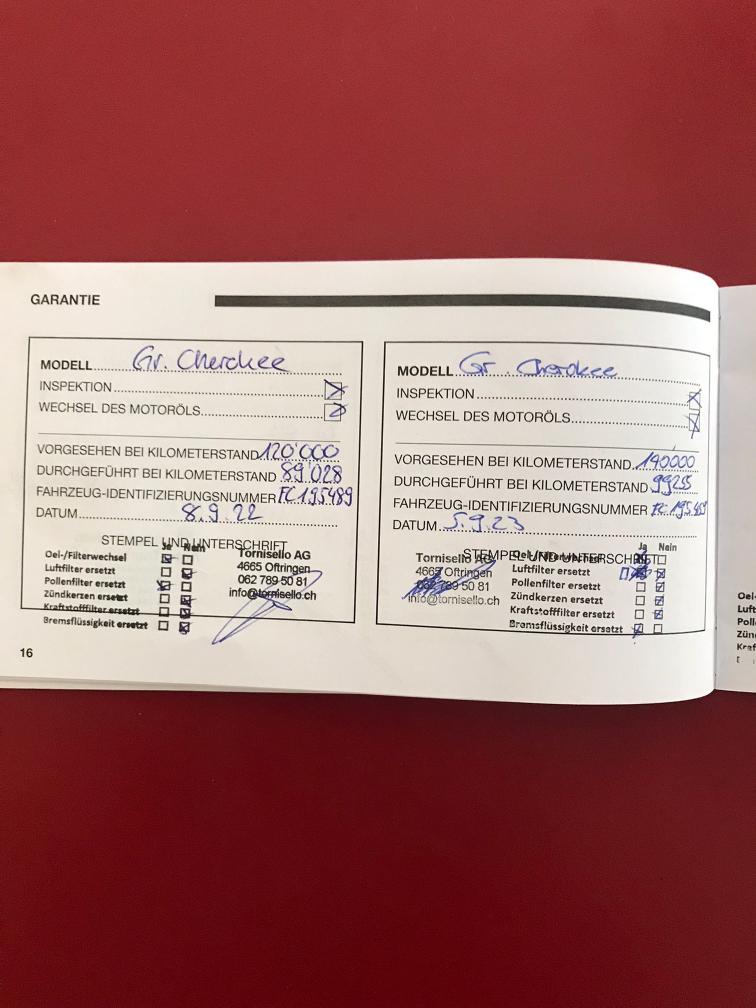 GARANTIE
MODELL Gr. Cherokee
INSPEKTION
WECHSEL DES MOTORÖLS
VORGESEHEN BEI KILOMETERSTAND 120'000
DURCHGEFÜHRT BEI KILOMETERSTAND 89'028
FAHRZEUG-IDENTIFIZIERUNGSNUMMER FC195489
DATUM 8.9.22
STEMPEL UND UNTERSCHRIFT
Ja Nein
Oel-/Filterwechsel
Luftfilter ersetzt
Pollenfilter ersetzt
Zündkerzen ersetzt
Kraftstofffilter ersetzt
Bremsflüssigkeit ersetzt
Tornisello AG
4665 Oftringen
062 789 50 81
info@tornisello.ch
16
MODELL Gr. Cherokee
INSPEKTION
WECHSEL DES MOTORÖLS
VORGESEHEN BEI KILOMETERSTAND 140000
DURCHGEFÜHRT BEI KILOMETERSTAND 99255
FAHRZEUG-IDENTIFIZIERUNGSNUMMER
DATUM 5.9.23
STEMPEL UND UNTERSCHRIFT
Ja Nein
Tornisello AG
4665 Oftringen
062 789 50 81
info@tornisello.ch
Luftfilter ersetzt
Pollenfilter ersetzt
Zündkerzen ersetzt
Kraftstofffilter ersetzt
Bremsflüssigkeit ersetzt